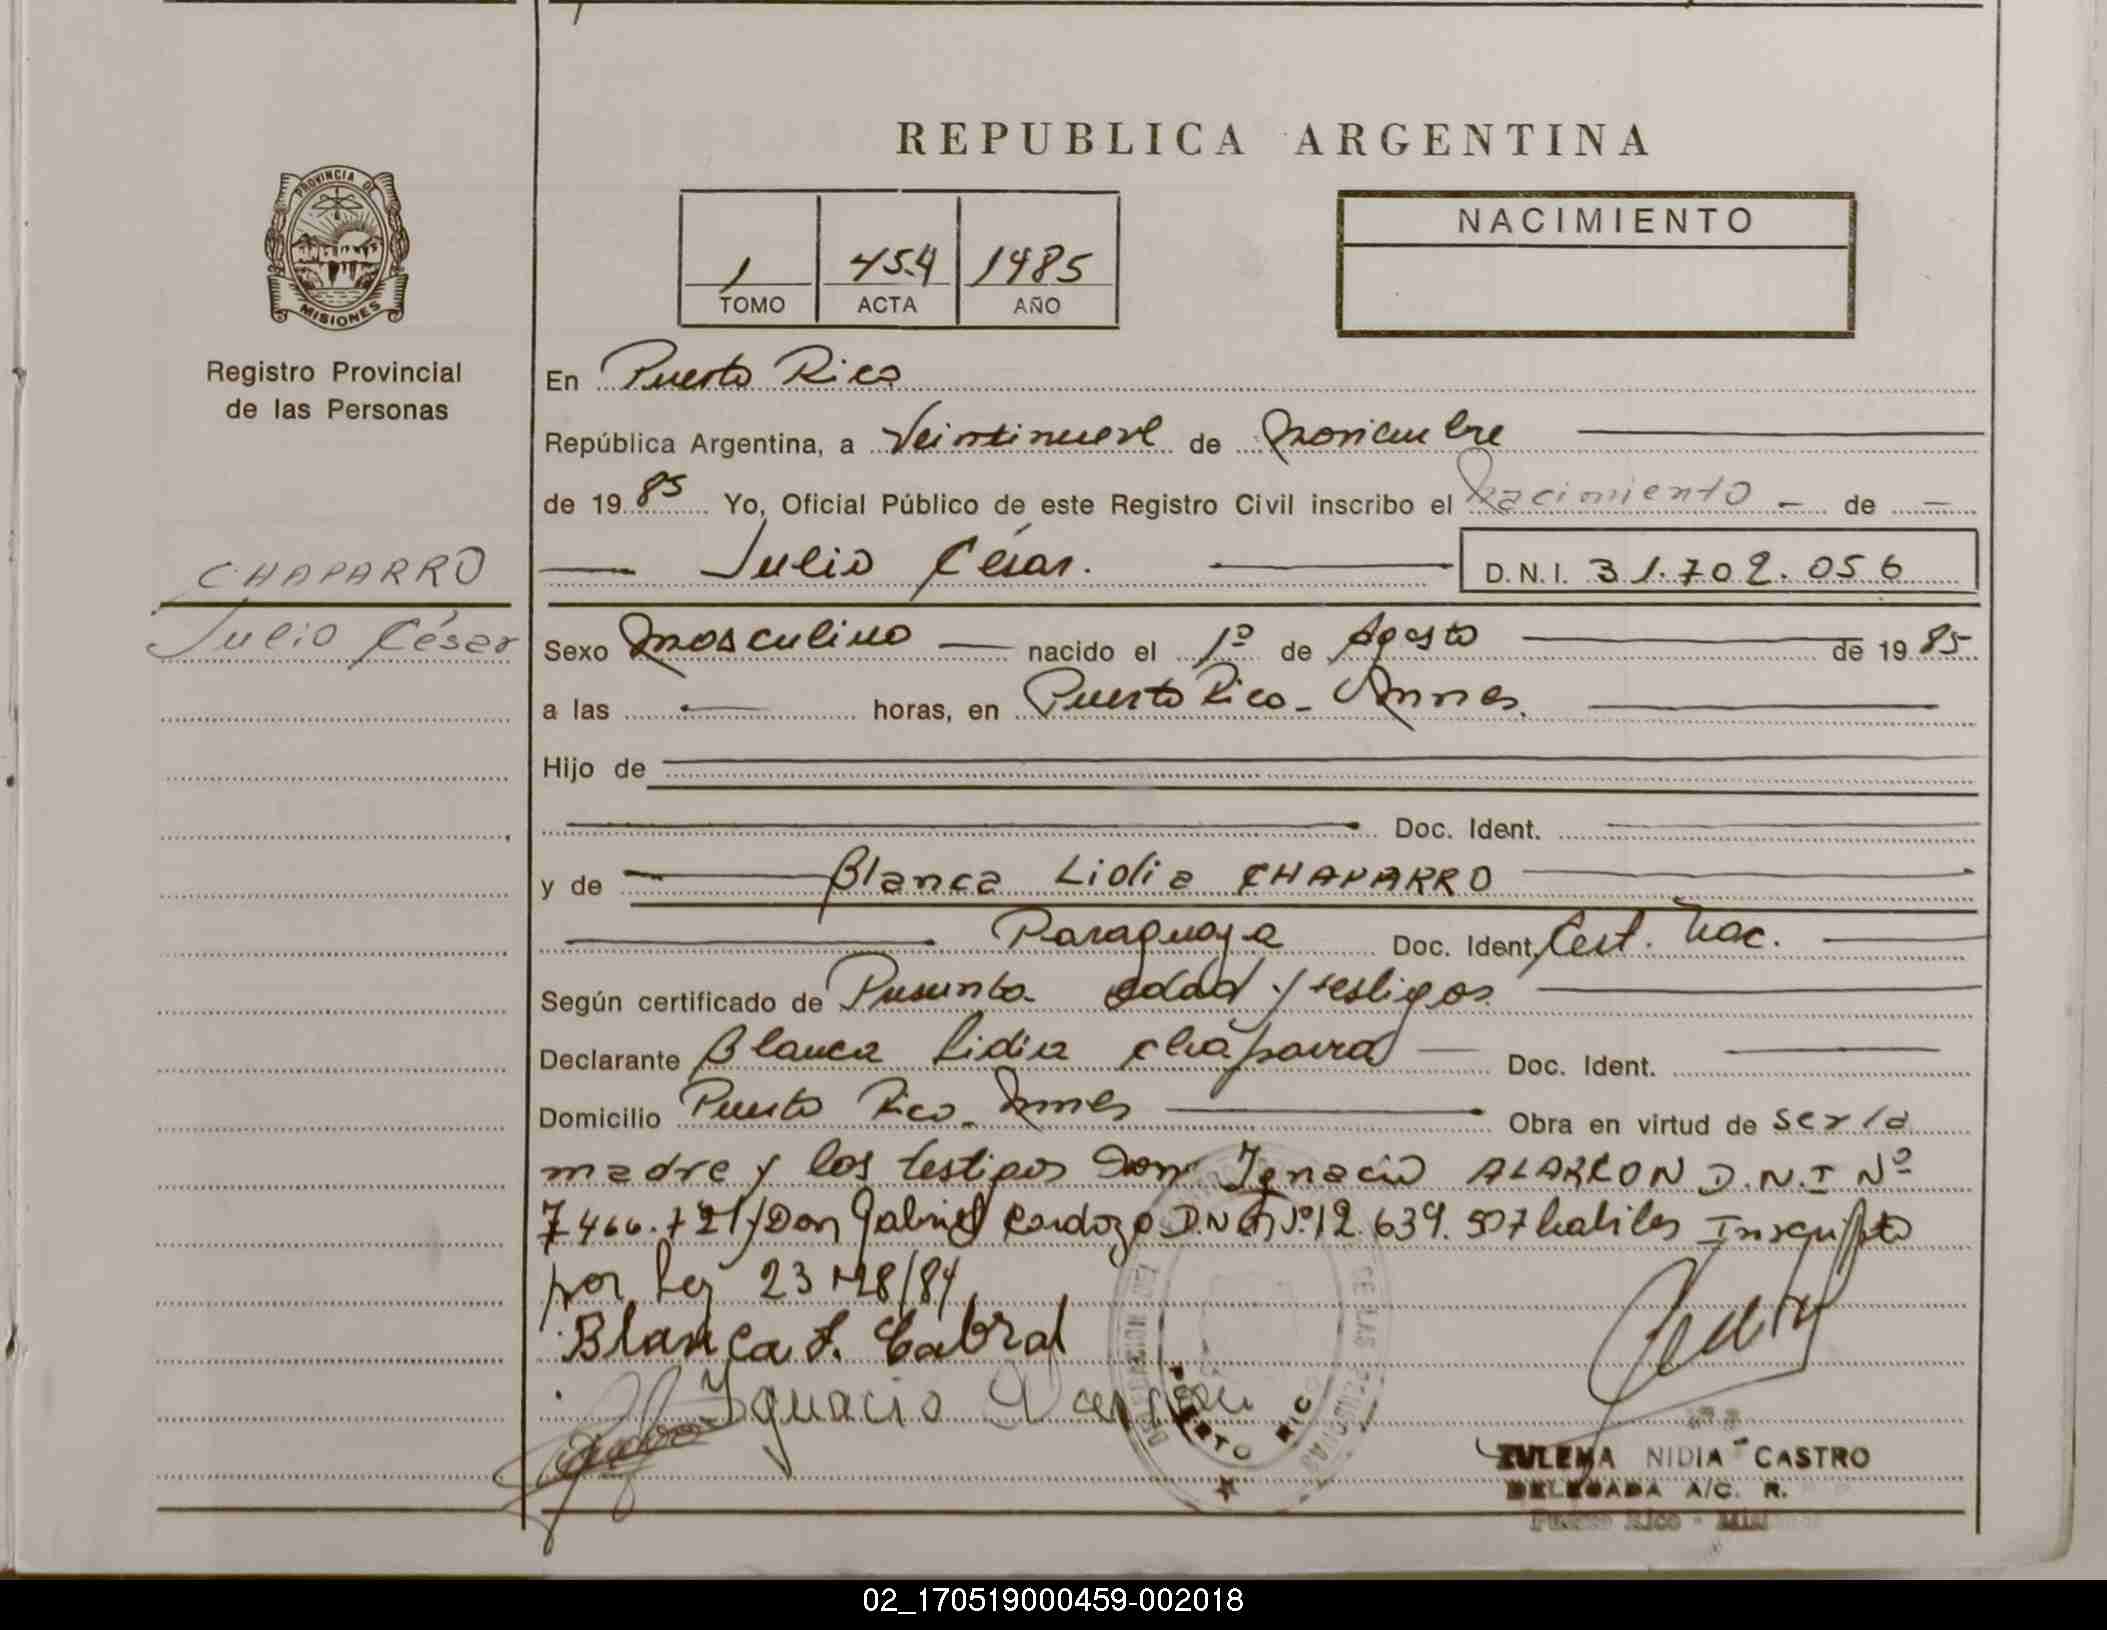 REPUBLICA ARGENTINA
PROVINCIA DE
MISIONES
Registro Provincial
de las Personas
1 454 1985
TOMO ACTA AÑO
NACIMIENTO
En Puerto Rico
República Argentina, a Veintinueve de noviembre
de 1985 Yo, Oficial Público de este Registro Civil inscribo el Nacimiento - de -
CHAPARRO
Julio César. D.N.I. 31.702.056
Julio César
Sexo masculino nacido el 1º de Agosto de 1985
a las - horas, en Puerto Rico - Mnes.
Hijo de
Doc. Ident.
y de Blanca Lidia CHAPARRO
Paraguaya Doc. Ident. Cert. Nac.
Según certificado de Presunta edad y testigos
Declarante Blanca Lidia Chaparro Doc. Ident.
Domicilio Puerto Rico - Mnes Obra en virtud de ser la
madre y los testigos Don Ignacio ALARCON D.N.I Nº
7466.721 y Don Gabriel Cardozo D.N.I Nº 12.639.507 habiles Inscripto
por ley 23128/84
Blanca L. Cabral
Ignacio
PUERTO RICO
ZULEMA NIDIA CASTRO
DELEGADA A/C. R.
Puerto Rico -
02_170519000459-002018